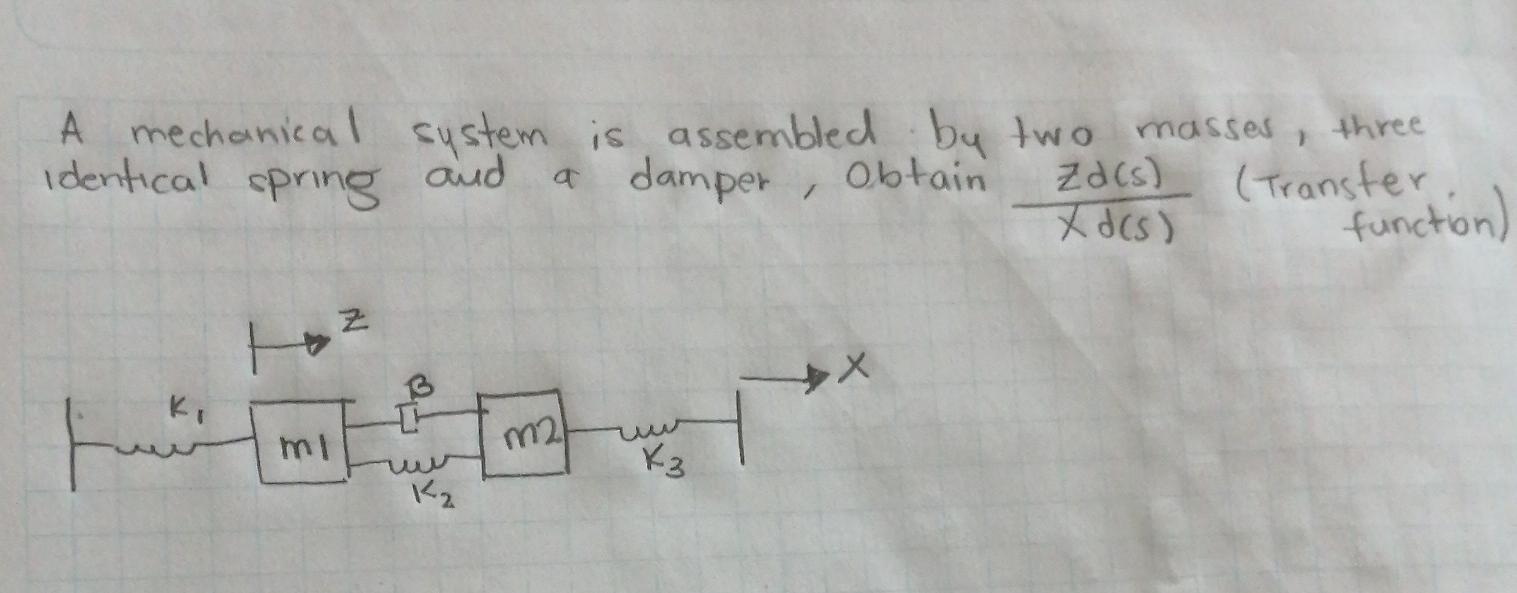 A mechanical system is assembled by two masses, three
identical spring and a damper, Obtain Zd(s) (Transfer
Xd(s) function)
Z
X
B
K1
m1
m2
K3
K2